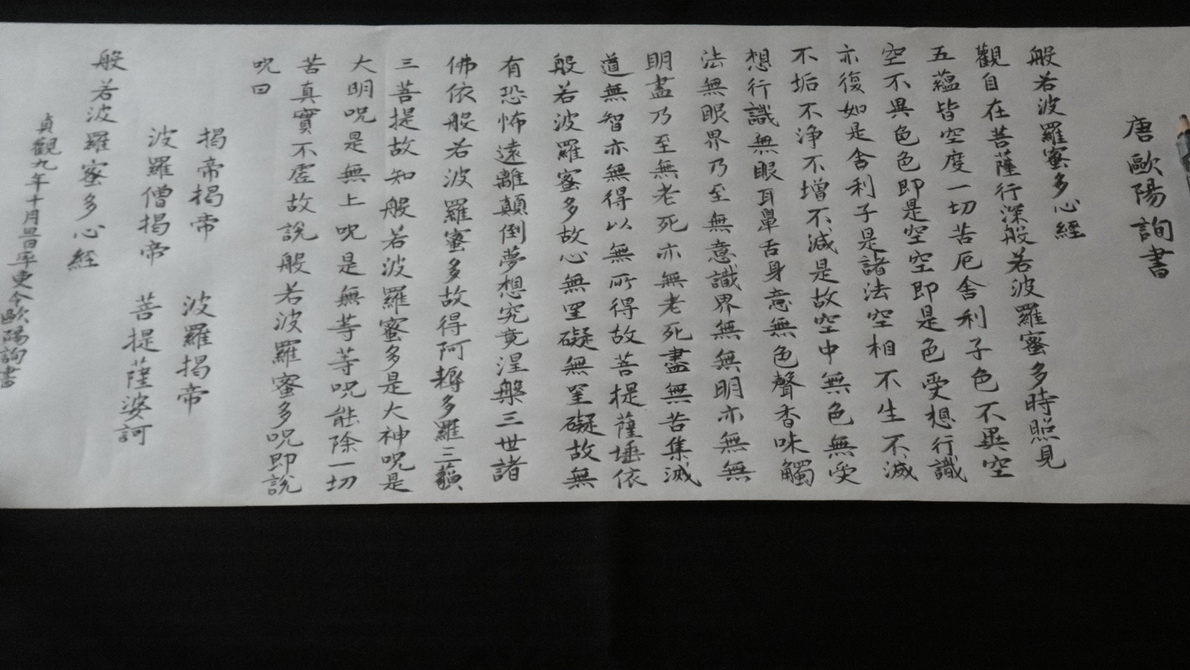 唐歐陽詢書
般若波羅蜜多心經
觀自在菩薩行深般若波羅蜜多時照見
五蘊皆空度一切苦厄舍利子色不異空
空不異色色即是空空即是色受想行識
亦復如是舍利子是諸法空相不生不滅
不垢不净不增不減是故空中無色無受
想行識無眼耳鼻舌身意無色聲香味觸
法無眼界乃至無意識界無無明亦無無
明盡乃至無老死亦無老死盡無苦集滅
道無智亦無得以無所得故菩提薩埵依
般若波羅蜜多故心無罣礙無罣礙故無
有恐怖遠離顛倒夢想究竟涅槃三世諸
佛依般若波羅蜜多故得阿耨多羅三藐
三菩提故知般若波羅蜜多是大神呪是
大明呪是無上呪是無等等呪能除一切
苦真實不虛故說般若波羅蜜多呪即說
呪曰
揭帝揭帝 波羅揭帝
波羅僧揭帝 菩提薩婆訶
般若波羅蜜多心經
貞觀九年十月旦日率更令歐陽詢書